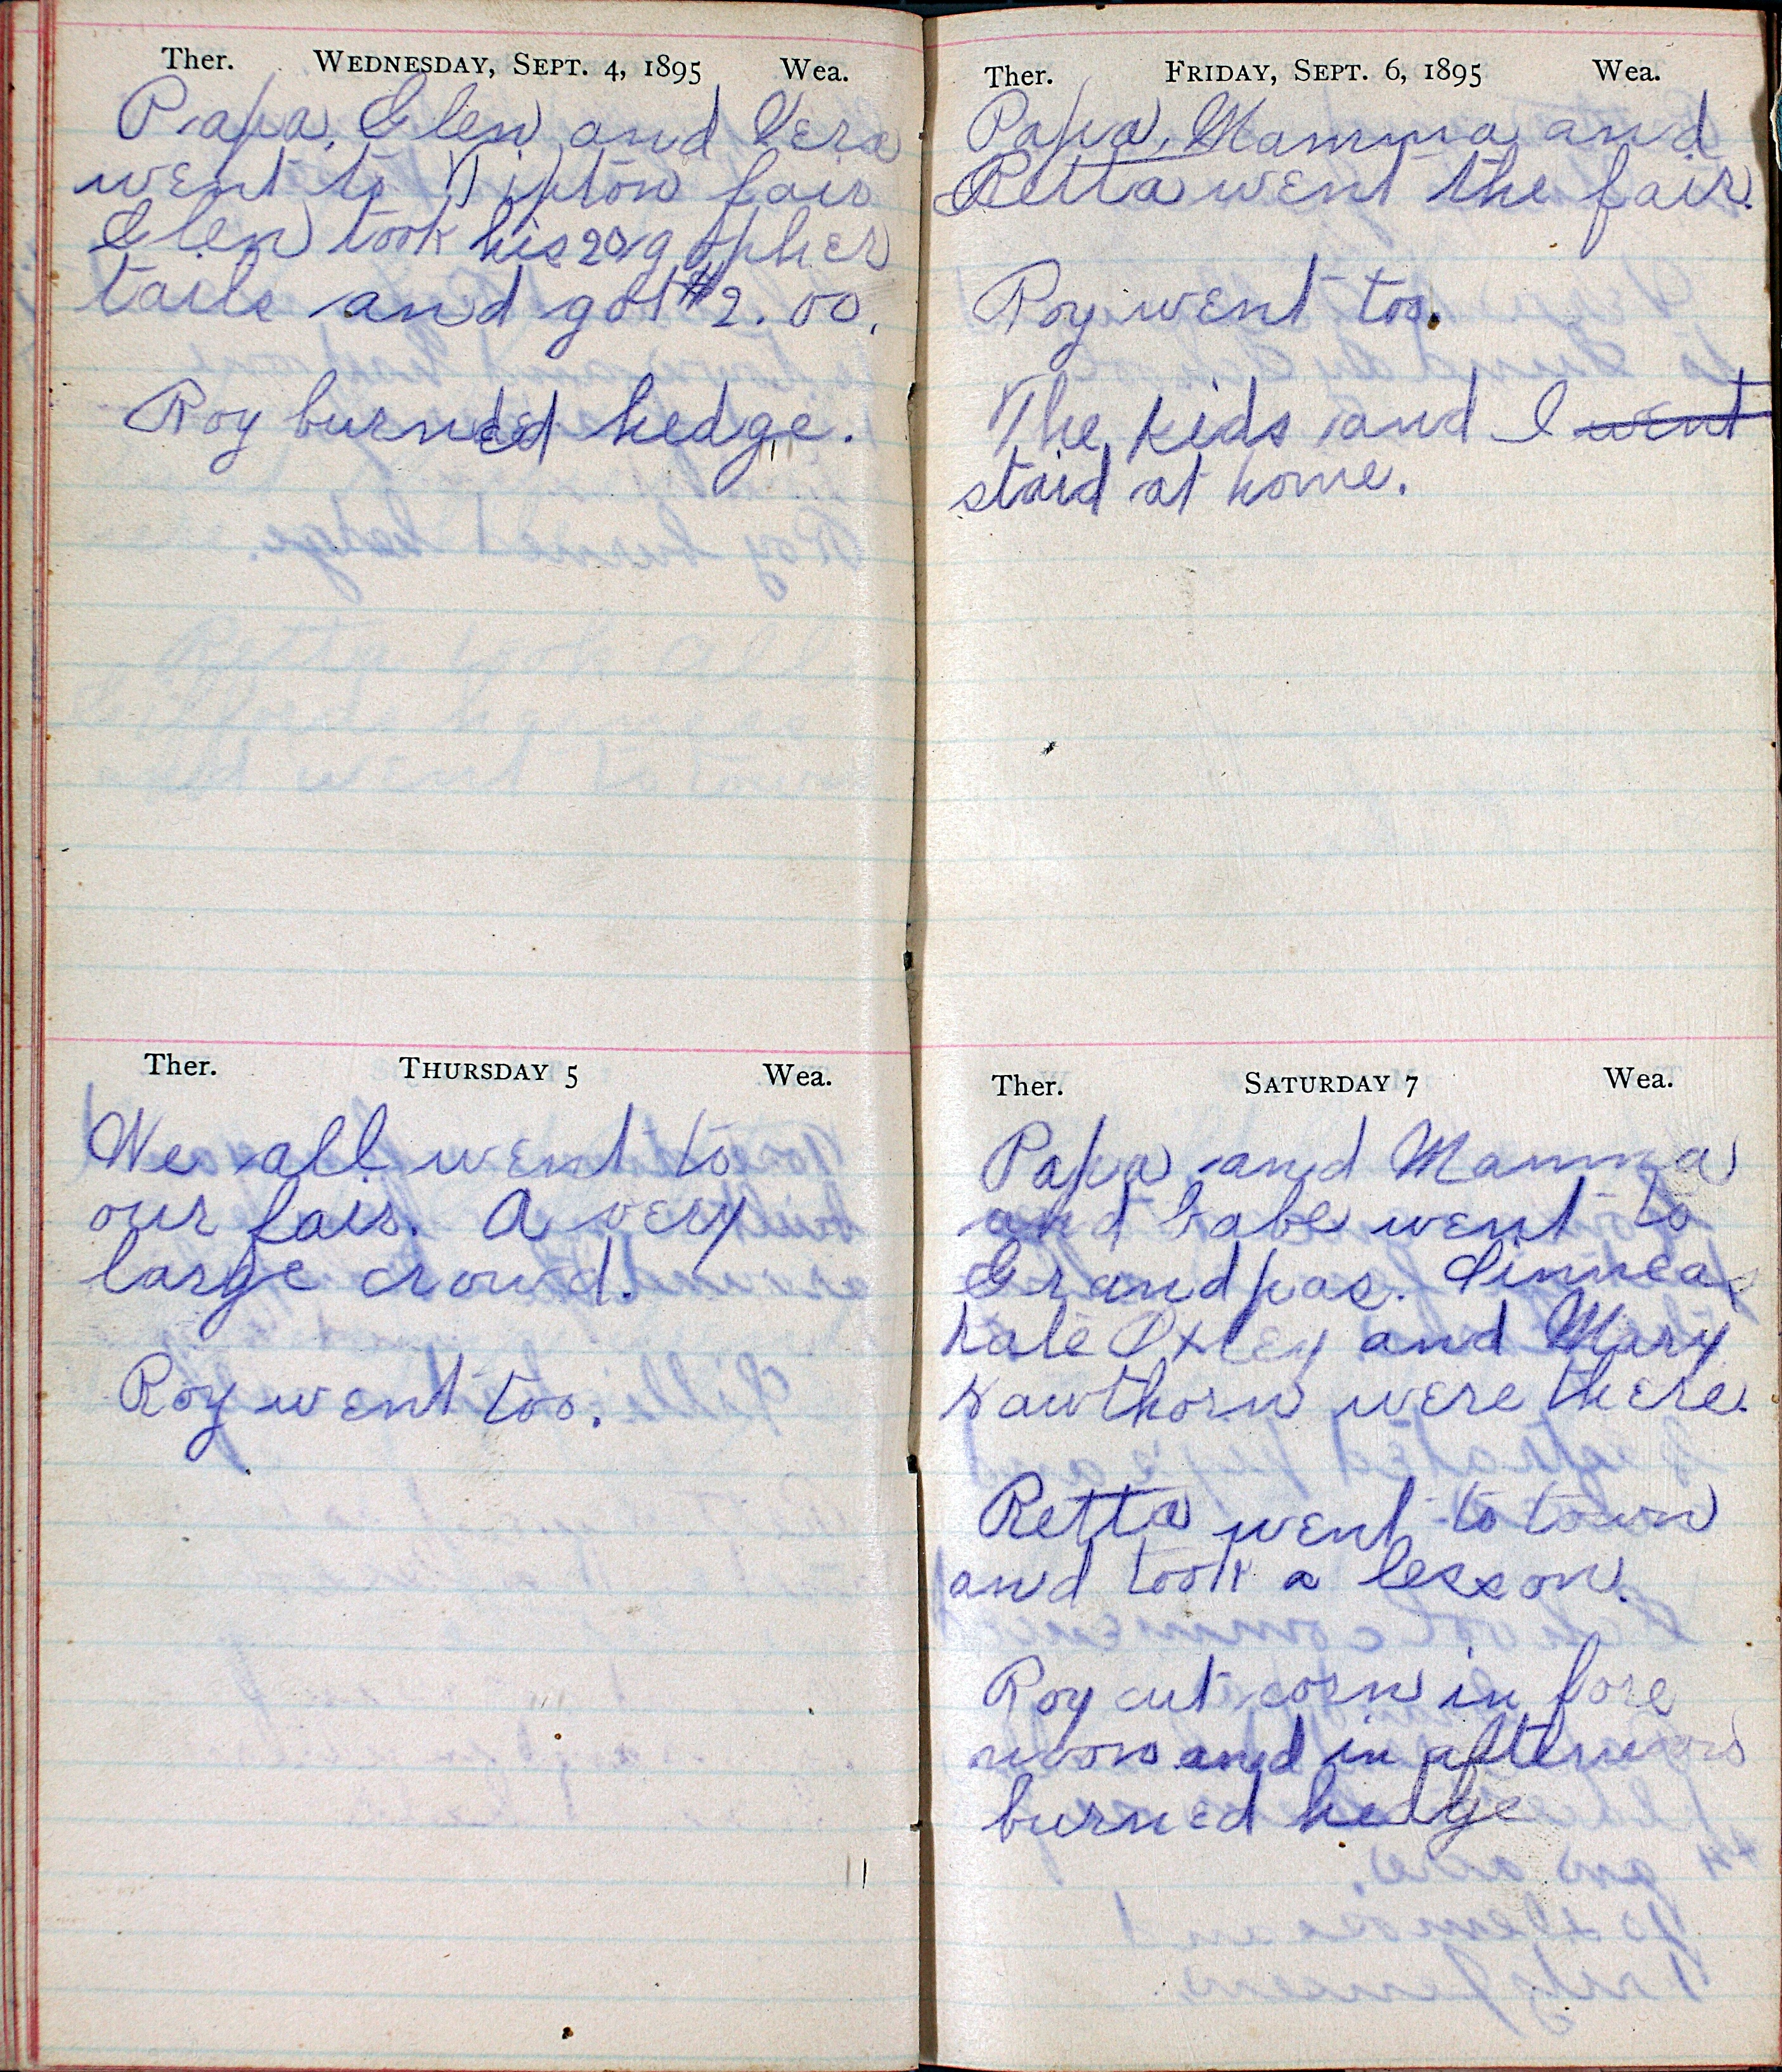 Ther. WEDNESDAY, SEPT. 4, 1895 Wea.
Papa, Glen and Vera
went to Tipton fair
Glen took his 20 gopher
tails and got $2.00.
Roy burned hedge.
Ther. THURSDAY 5 Wea.
We all went to
our fair. A very
large crowd.
Roy went too.
Ther. FRIDAY, SEPT. 6, 1895 Wea.
Papa, Mamma and
Retta went the fair.
Roy went too.
The kids and I went
staid at home.
Ther. SATURDAY 7 Wea.
Papa and Mamma
and babe went to
Grandpas. Linnea,
Kate Oxley and Mary
Hawthorn were there.
Retta went to town
and took a lesson.
Roy cut corn in fore
noon and in afternoon
burned hedge